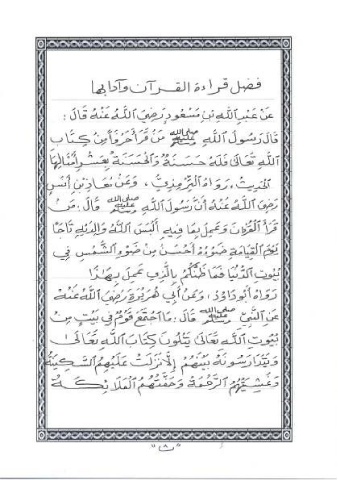 فضل قراءة القرآن وآدابها
عَنْ عَبْدِ اللَّهِ بْنِ مَسْعُودٍ رَضِيَ اللَّهُ عَنْهُ قَالَ :
قَالَ رَسُولُ اللَّهِ ﷺ مَنْ قَرَأَ حَرْفًا مِنْ كِتَابِ
اللَّهِ تَعَالَى فَلَهُ حَسَنَةٌ وَالْحَسَنَةُ بِعَشْرِ أَمْثَالِهَا
الحَدِيثَ. رَوَاهُ التِّرْمِذِيُّ، وَعَنْ مُعَاذِ بْنِ أَنَسٍ
رَضِيَ اللَّهُ عَنْهُ أَنَّ رَسُولَ اللَّهِ ﷺ قَالَ: مَنْ
قَرَأَ الْقُرْآنَ وَعَمِلَ بِمَا فِيهِ أَلْبَسَ اللَّهُ وَالِدَيْهِ تَاجًا
يَوْمَ القِيَامَةِ ضَوْءُهُ أَحْسَنُ مِنْ ضَوْءِ الشَّمْسِ فِي
بُيُوتِ الدُّنْيَا فَمَا ظَنُّكُمْ بِالَّذِي عَمِلَ بِهَذَا
رَوَاهُ أَبُو دَاوُدَ، وَعَنْ أَبِي هُرَيْرَةَ رَضِيَ اللَّهُ عَنْهُ
عَنِ النَّبِيِّ ﷺ قَالَ : مَا اجْتَمَعَ قَوْمٌ فِي بَيْتٍ مِنْ
بُيُوتِ اللَّهِ تَعَالَى يَتْلُونَ كِتَابَ اللَّهِ تَعَالَى
وَيَتَدَارَسُونَهُ بَيْنَهُمْ إِلَّا نَزَلَتْ عَلَيْهِمُ السَّكِينَةُ
وَغَشِيَتْهُمُ الرَّحْمَةُ وَحَفَّتْهُمُ الْمَلَائِكَةُ